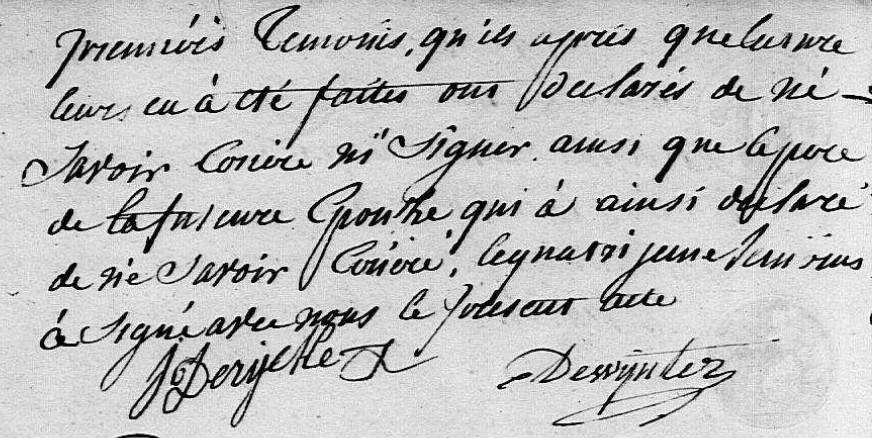 premiérs Temoins, qu'ils après que lecture
leurs en à été faites ont declarés de né
Savoir Ecrire ni Signer ainsi que le pere
de la future Epouse qui à ainsi declaré
de né Savoir Ecriré, le quatrieme Temoins
à Signé avec nous le present acte
J Derycke Dewynter